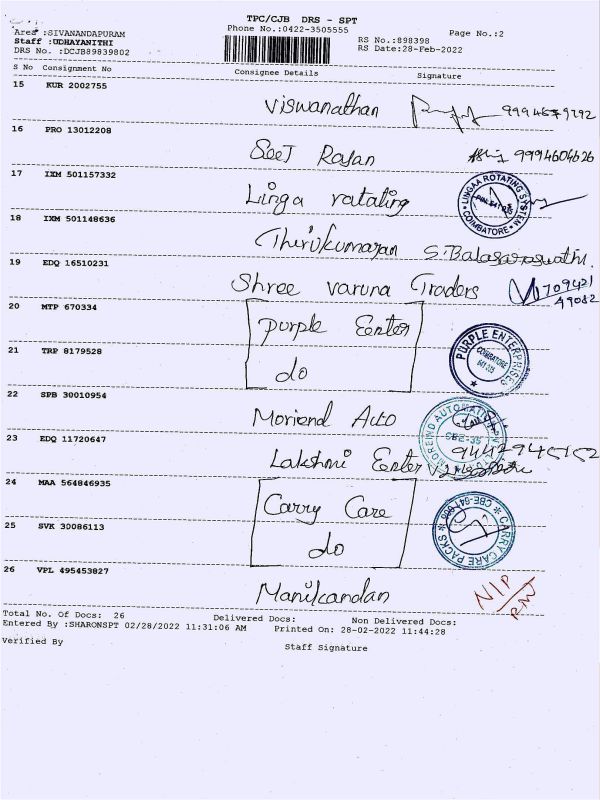 TPC/CJB DRS - SPT
Phone No.:0422-3505555
Page No.:2
Area :SIVANANDAPURAM
Staff :UDHAYANITHI
DRS No. :DCJB89839802
RS No.:898398
RS Date:28-Feb-2022
S No Consignment No Consignee Details Signature
15 KUR 2002755
Viswanathan
16 PRO 13012208
SeeJ Rajan 9994604626
17 IXM 501157332
Linga rotating
LINGAA ROTATING SYSTEM
COIMBATORE
18 IXM 501148636
Thirukumaran S.Balasaraswathi.
19 EDQ 16510231
Shree varuna Traders 709421
49082
20 MTP 670334
Purple Enter
PURPLE ENTERPRISES
COIMBATORE
21 TRP 8179528
do
22 SPB 30010954
Moriend Auto
CBE-35
23 EDQ 11720647
Lakshmi Enter
24 MAA 564846935
Carry Care
CARRY CARE PACKS
25 SVK 30086113
do
26 VPL 495453827
Manikandan
Total No. Of Docs: 26 Delivered Docs: Non Delivered Docs:
Entered By :SHARONSPT 02/28/2022 11:31:06 AM Printed On: 28-02-2022 11:44:28
Verified By
Staff Signature